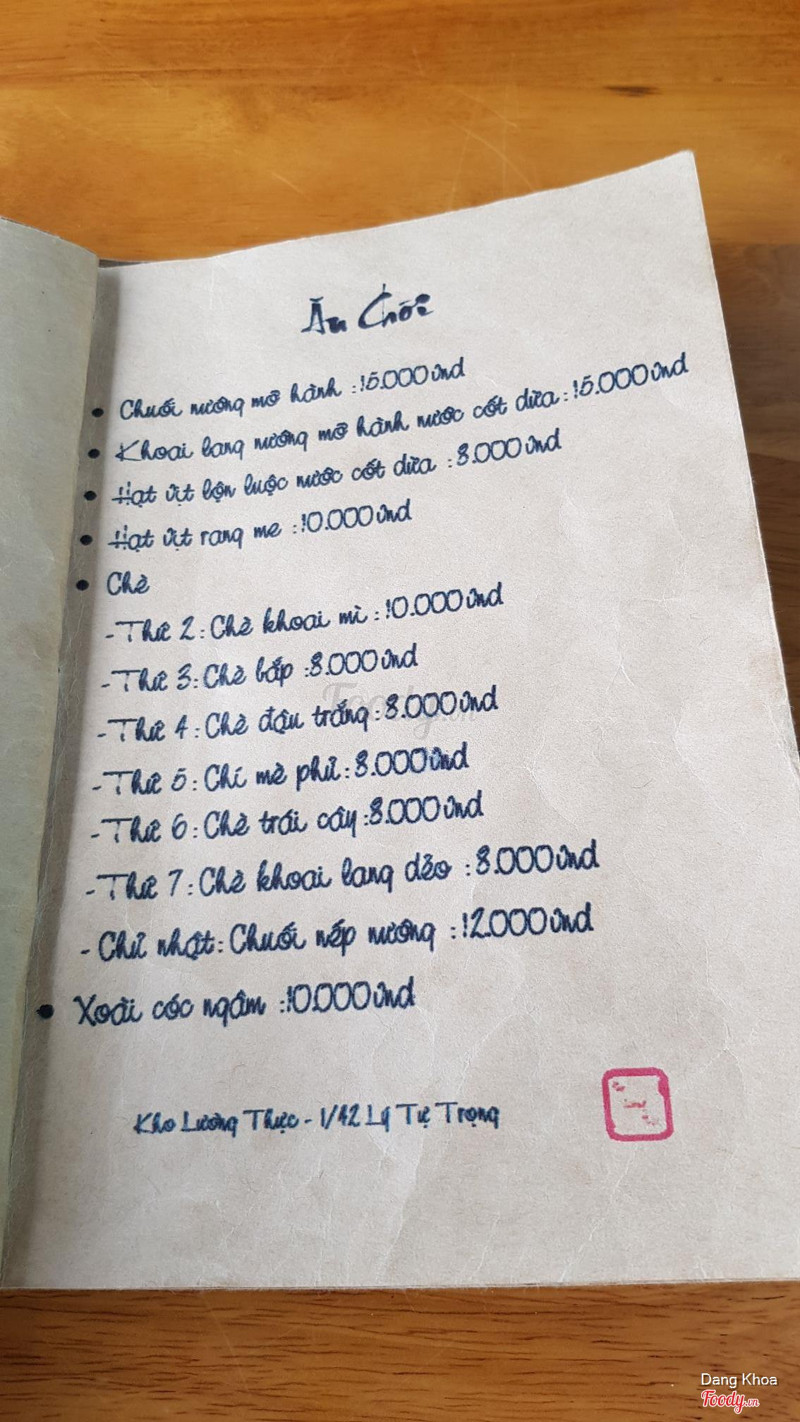 Ăn Chơi
• Chuối nướng mỡ hành : 15.000 vnd
• Khoai lang nướng mỡ hành nước cốt dừa : 15.000 vnd
• Hạt vịt lộn luộc nước cốt dừa : 8.000 vnd
• Hạt vịt rang me : 10.000 vnd
• Chè
- Thứ 2 : Chè khoai mì : 10.000 vnd
- Thứ 3 : Chè bắp : 8.000 vnd
- Thứ 4 : Chè đậu trắng : 8.000 vnd
- Thứ 5 : Chí mè phủ : 8.000 vnd
- Thứ 6 : Chè trái cây : 8.000 vnd
- Thứ 7 : Chè khoai lang dẻo : 8.000 vnd
- Chủ nhật : Chuối nếp nướng : 12.000 vnd
• Xoài cóc ngâm : 10.000 vnd
Kho Lương Thực - 1/42 Lý Tự Trọng
Foody.vn
Dang Khoa
Foody.vn